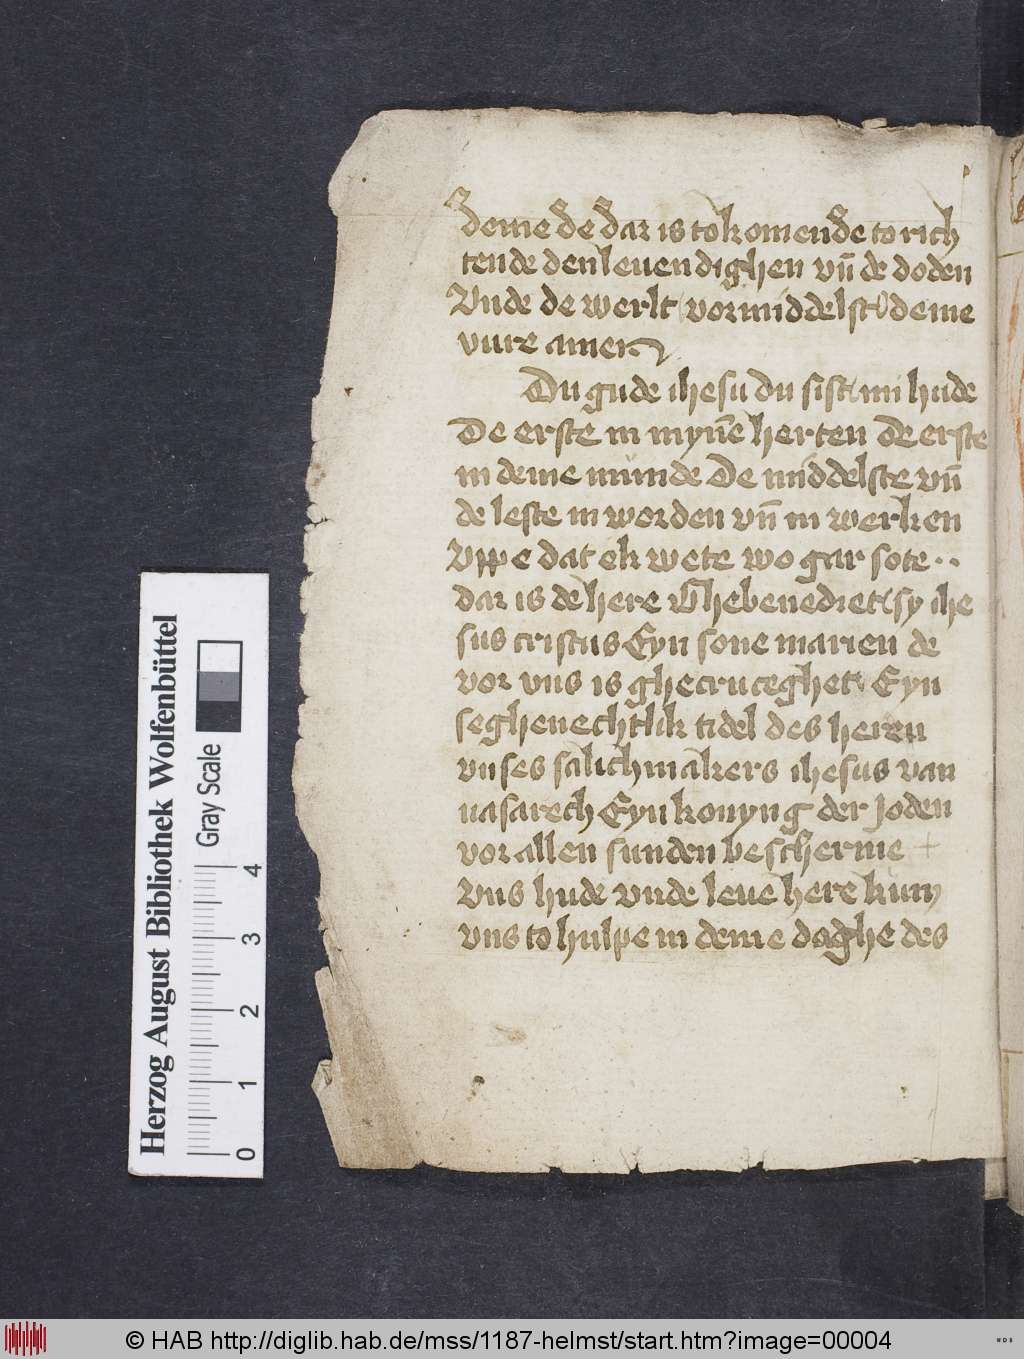 deme de dar is tokomende to rich
tende den leuendighen vn̄ de doden
Vnde de werlt vormiddelst deme
vure amen
Du gude ihesu du sist mi hude
De erste in myn̄e herten de erste
in deme munde De middelste vn̄
de leste in worden vn̄ in werken
Vppe dat ek wete wo gar sote ..
dar is de here Ghebenediet sy ihe
sus cristus Eyn sone marien de
vor vns is ghecruceghet Eyn
seghenechtlik tidel des heren
vnses salichmakers ihesus van
nasarech Eyn konyng der Joden
vor allen sunden bescherme +
Vns hude vnde leue here kum
vns to hulpe in deme daghe des
Herzog August Bibliothek Wolfenbüttel
Gray Scale
0 1 2 3 4
© HAB http://diglib.hab.de/mss/1187-helmst/start.htm?image=00004
WDB